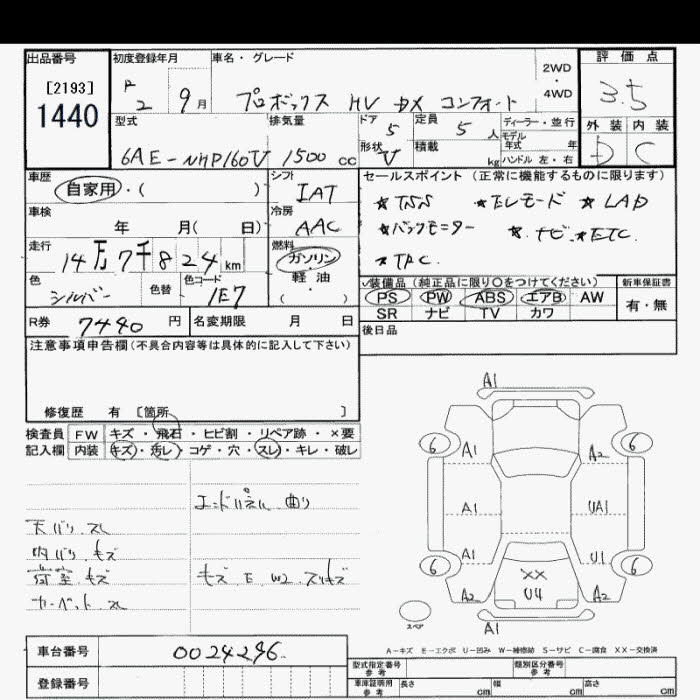 出品番号 初度登録年月 車名・グレード 2WD・4WD 評価点
[2193]
1440
R 2 9月 プロボックス HV DX コンフォート 3.5
型式 排気量 ドア 5 定員 5人 ディーラー・並行 外装 内装
モデル年式 年
6AE-NHP160V 1500cc 形状 V 積載 kg ハンドル 左・右 D C
車歴 自家用・( ) シフト IAT セールスポイント (正常に機能するものに限ります)
★TSS ★TEレモード ★LAD
車検 年 月( 日) 冷房 AAC ★バックモニター ★ナビ ★ETC
走行 14万7千824km 燃料 ガソリン・軽油・( ) ★TRC
色 シルバー 色替 色コード 1E7 装備品 (純正品に限り○をつけてください) 新車保証書
PS PW ABS エアB AW 有・無
SR ナビ TV カワ
R券 7440円 名変期限 月 日 後日品
注意事項申告欄(不具合内容等は具体的に記入して下さい)
修復歴 有 [箇所 ]
検査員 FW キズ・飛石・ヒビ割・リペア跡・×要
記入欄 内装 キズ・汚レ・コゲ・穴・スレ・キレ・破レ
エンドパネル 曲り
天バリ スレ
内バリ キズ
荷室 キズ キズ E W2 スリキズ
カーペット スレ
A1
6 A1 A2 6
A1 UA1
A1 U1
6 A2 ×× U4 A2 6
スペア A1
A-キズ E-エクボ U-凹み W-補修跡 S-サビ C-腐食 XX-交換済
車台番号 0024296
型式指定番号 参考 類別区分番号 参考
登録番号 車庫証明用 参考 長さ cm 幅 cm 高さ cm